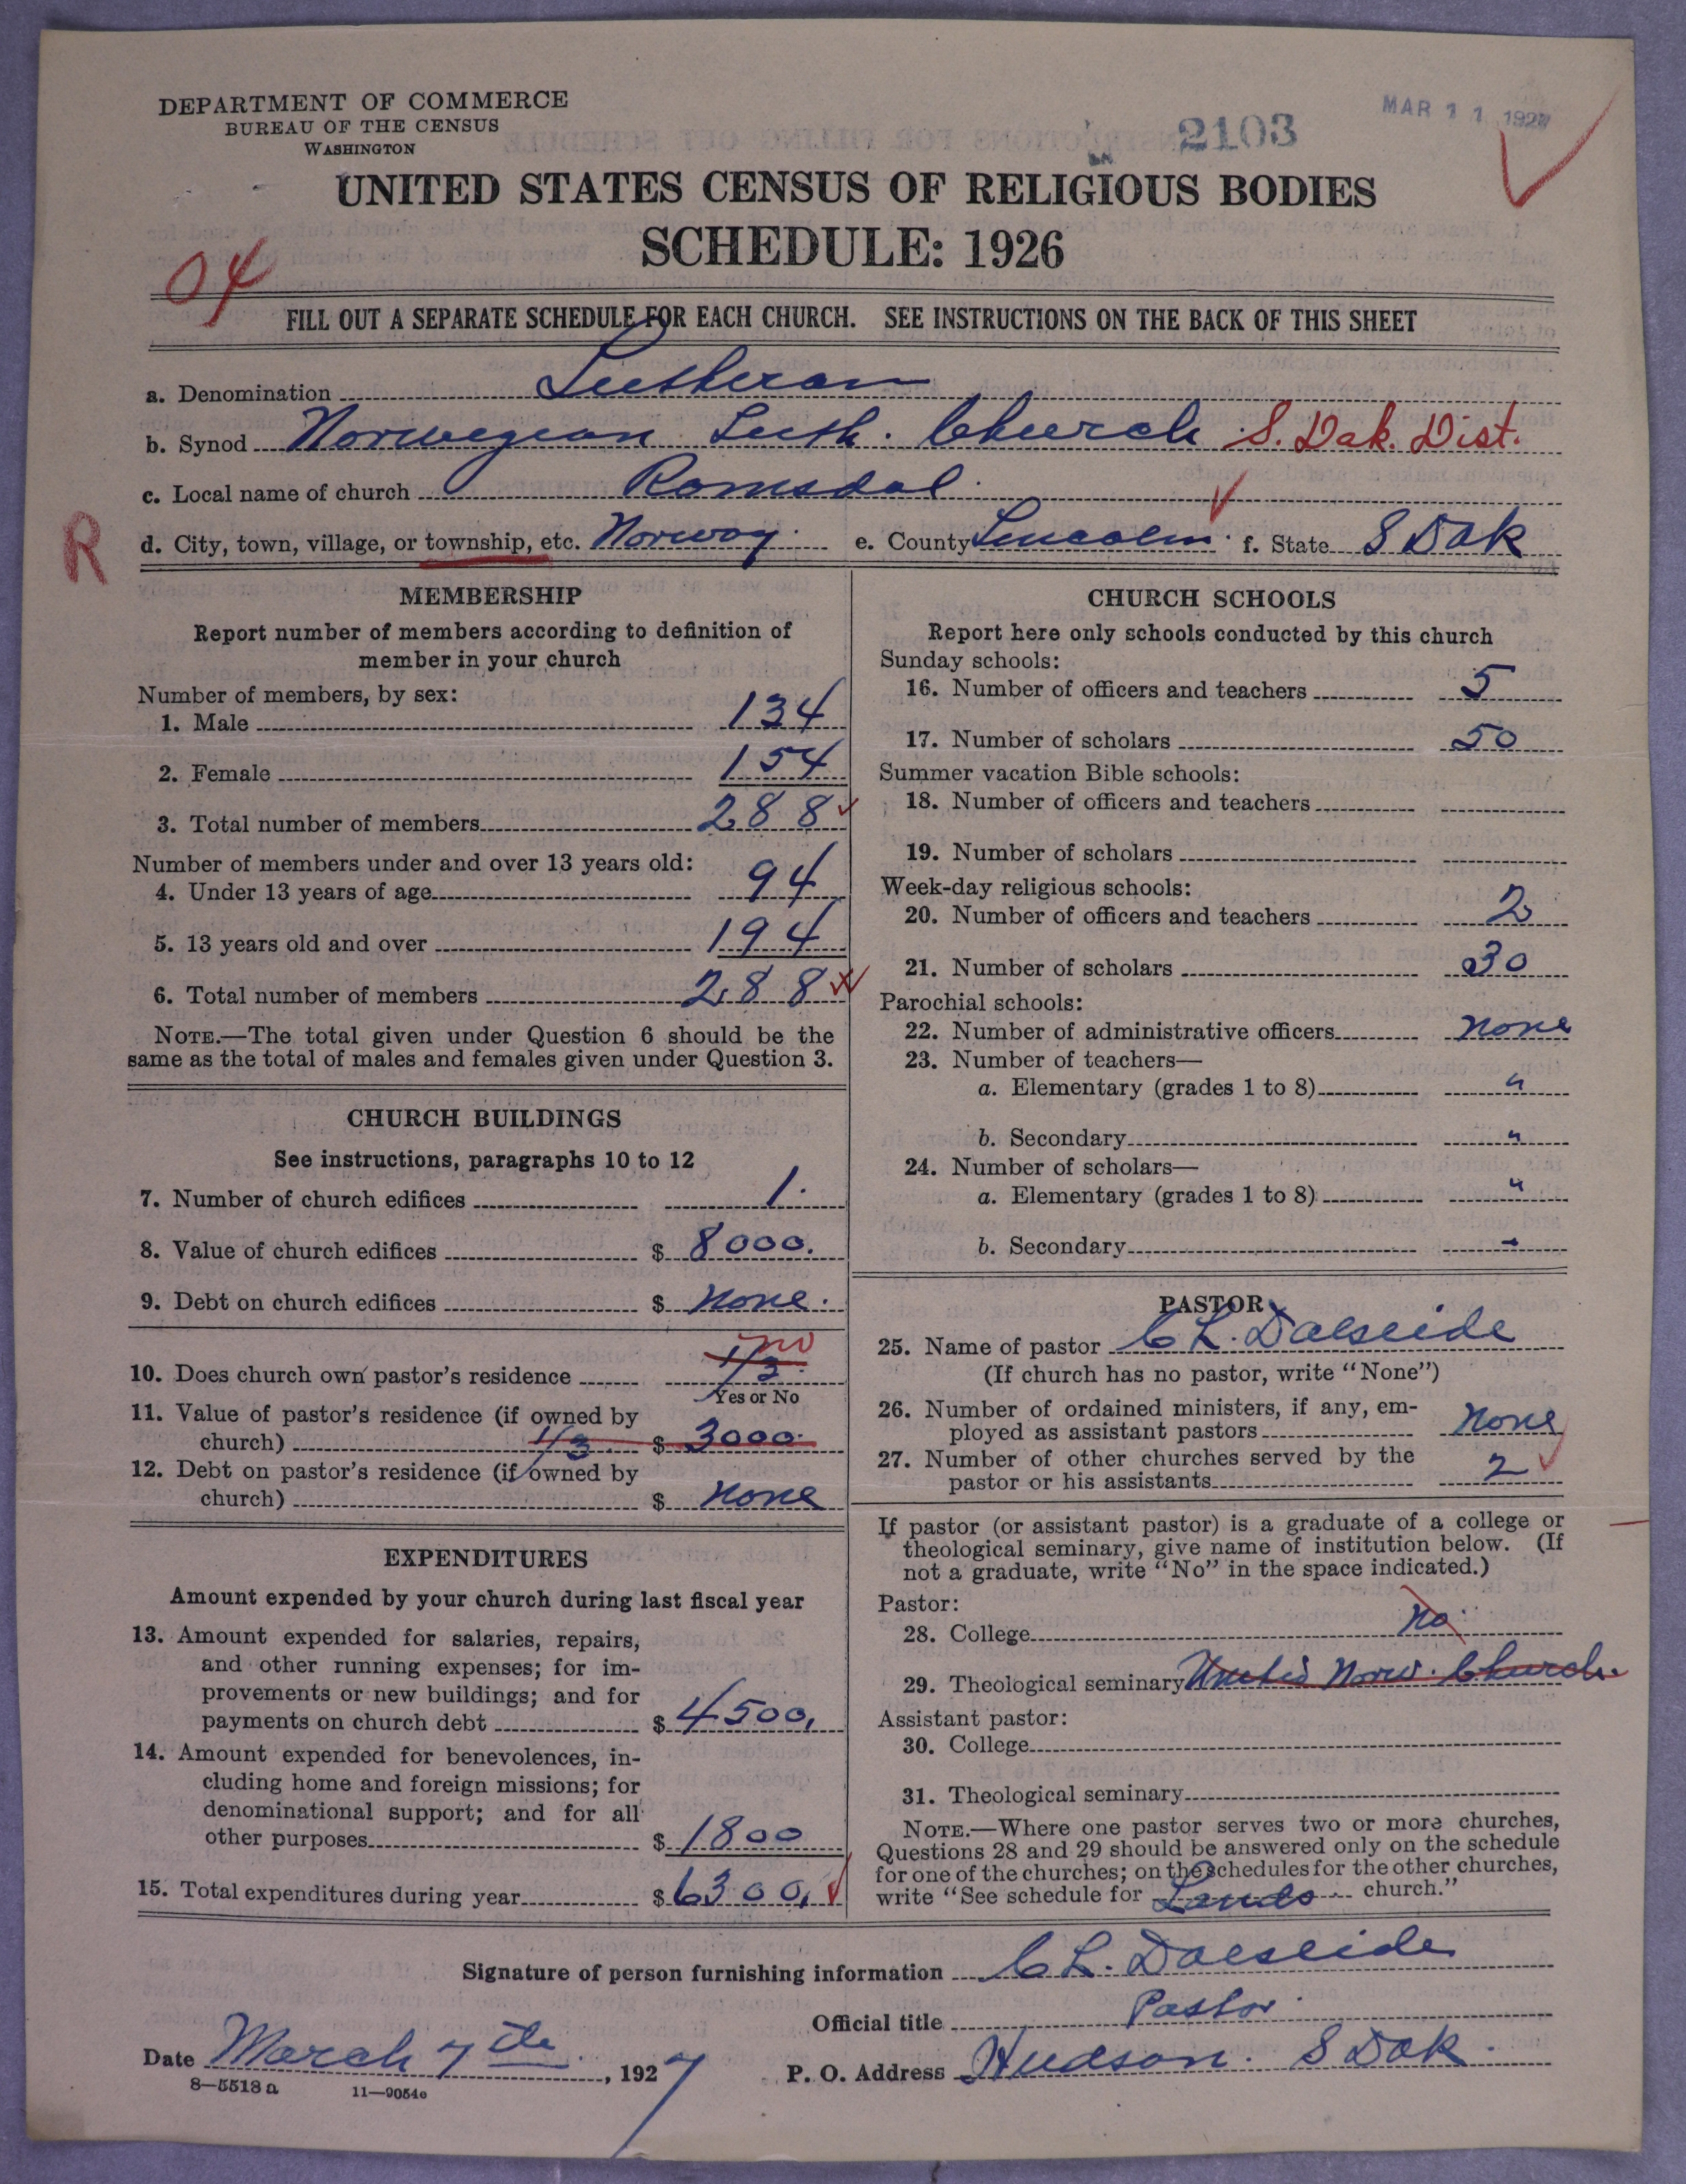 DEPARTMENT OF COMMERCE
BUREAU OF THE CENSUS
WASHINGTON
2103
MAR 11 1927
UNITED STATES CENSUS OF RELIGIOUS BODIES
SCHEDULE: 1926
04
FILL OUT A SEPARATE SCHEDULE FOR EACH CHURCH. SEE INSTRUCTIONS ON THE BACK OF THIS SHEET
a. Denomination Lutheran
b. Synod Norwegian Luth. Church S. Dak. Dist.
c. Local name of church Romsdal
R
d. City, town, village, or township, etc. Norway e. County Lincoln f. State S Dak
MEMBERSHIP
Report number of members according to definition of
member in your church
Number of members, by sex:
1. Male 134
2. Female 154
3. Total number of members 288
Number of members under and over 13 years old:
4. Under 13 years of age 94
5. 13 years old and over 194
6. Total number of members 288
NOTE.—The total given under Question 6 should be the
same as the total of males and females given under Question 3.
CHURCH BUILDINGS
See instructions, paragraphs 10 to 12
7. Number of church edifices 1.
8. Value of church edifices $ 8000.
9. Debt on church edifices $ None.
no
10. Does church own pastor's residence 1/3
Yes or No
11. Value of pastor's residence (if owned by
church) 1/3 $ 3000.
12. Debt on pastor's residence (if owned by
church) $ None
EXPENDITURES
Amount expended by your church during last fiscal year
13. Amount expended for salaries, repairs,
and other running expenses; for im-
provements or new buildings; and for
payments on church debt $ 4500.
14. Amount expended for benevolences, in-
cluding home and foreign missions; for
denominational support; and for all
other purposes $ 1800
15. Total expenditures during year $ 6300.
CHURCH SCHOOLS
Report here only schools conducted by this church
Sunday schools:
16. Number of officers and teachers 5
17. Number of scholars 50
Summer vacation Bible schools:
18. Number of officers and teachers
19. Number of scholars
Week-day religious schools:
20. Number of officers and teachers 2
21. Number of scholars 30
Parochial schools:
22. Number of administrative officers None
23. Number of teachers—
a. Elementary (grades 1 to 8) "
b. Secondary "
24. Number of scholars—
a. Elementary (grades 1 to 8) "
b. Secondary "
PASTOR
25. Name of pastor C L. Dalseide
(If church has no pastor, write "None")
26. Number of ordained ministers, if any, em-
ployed as assistant pastors None
27. Number of other churches served by the
pastor or his assistants 2
If pastor (or assistant pastor) is a graduate of a college or
theological seminary, give name of institution below. (If
not a graduate, write "No" in the space indicated.)
Pastor:
28. College No.
29. Theological seminary United Norw. Church.
Assistant pastor:
30. College
31. Theological seminary
NOTE.—Where one pastor serves two or more churches,
Questions 28 and 29 should be answered only on the schedule
for one of the churches; on the schedules for the other churches,
write "See schedule for Lands church."
Signature of person furnishing information C L. Dalseide
Official title Pastor
Date March 7th, 1927 P. O. Address Hudson. S Dak.
8—5518 a 11—9054c